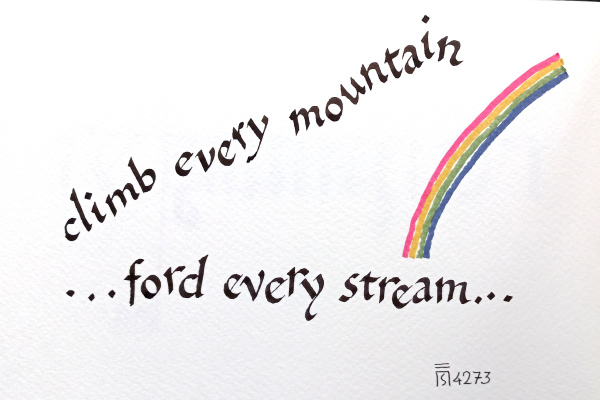 climb every mountain
...ford every stream...
4273